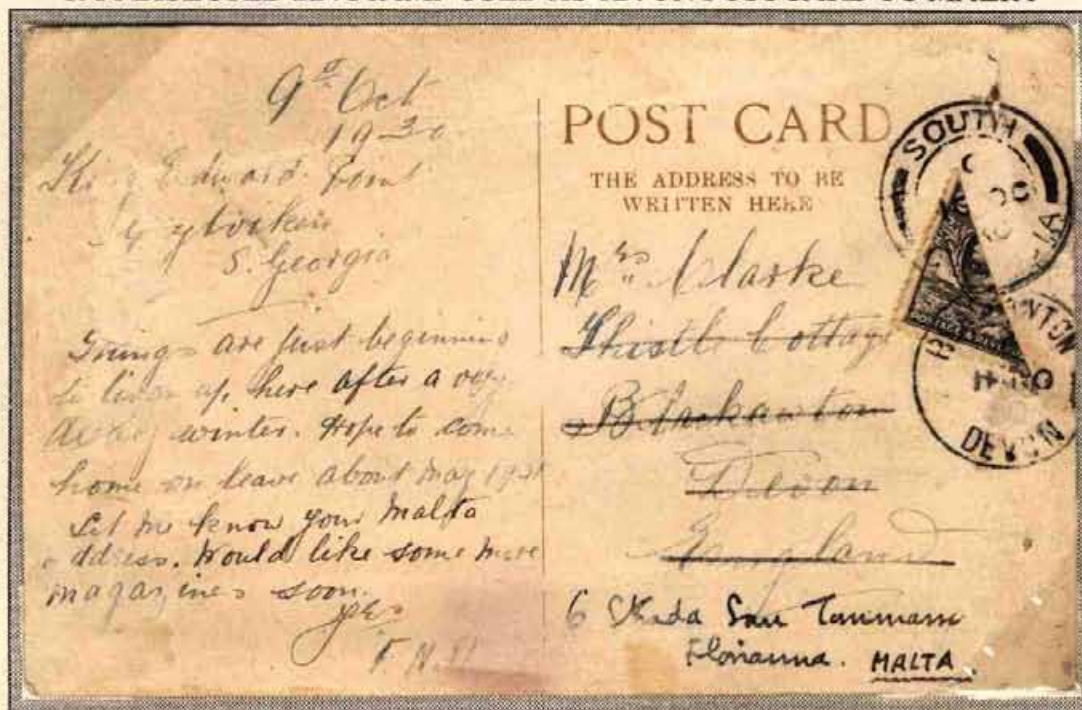 9th Oct
1930
King Edward Point
Grytviken
S. Georgia
Things are just beginning
to liven up, here after a very
winter. Hope to come
home on leave about May 1931
Let me know your Malta
address. Would like some more
magazines soon.
POST CARD
THE ADDRESS TO BE
WRITTEN HERE
Mrs Clarke
Thistle Cottage
Blackawton
Devon
England
6 Strada San Tommaso
Florianna. MALTA
SOUTH
DEVON